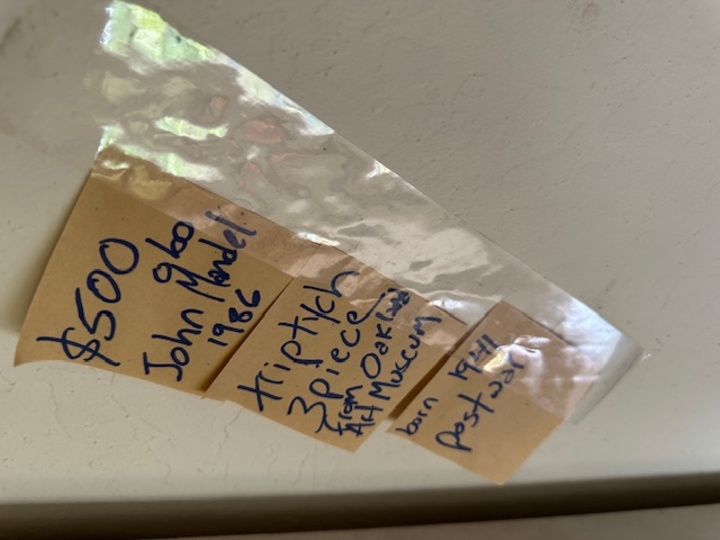 $500 obo
John Mandel
1986
triptych
3 piece
from Oakland
Art Museum
born 1941
postwar